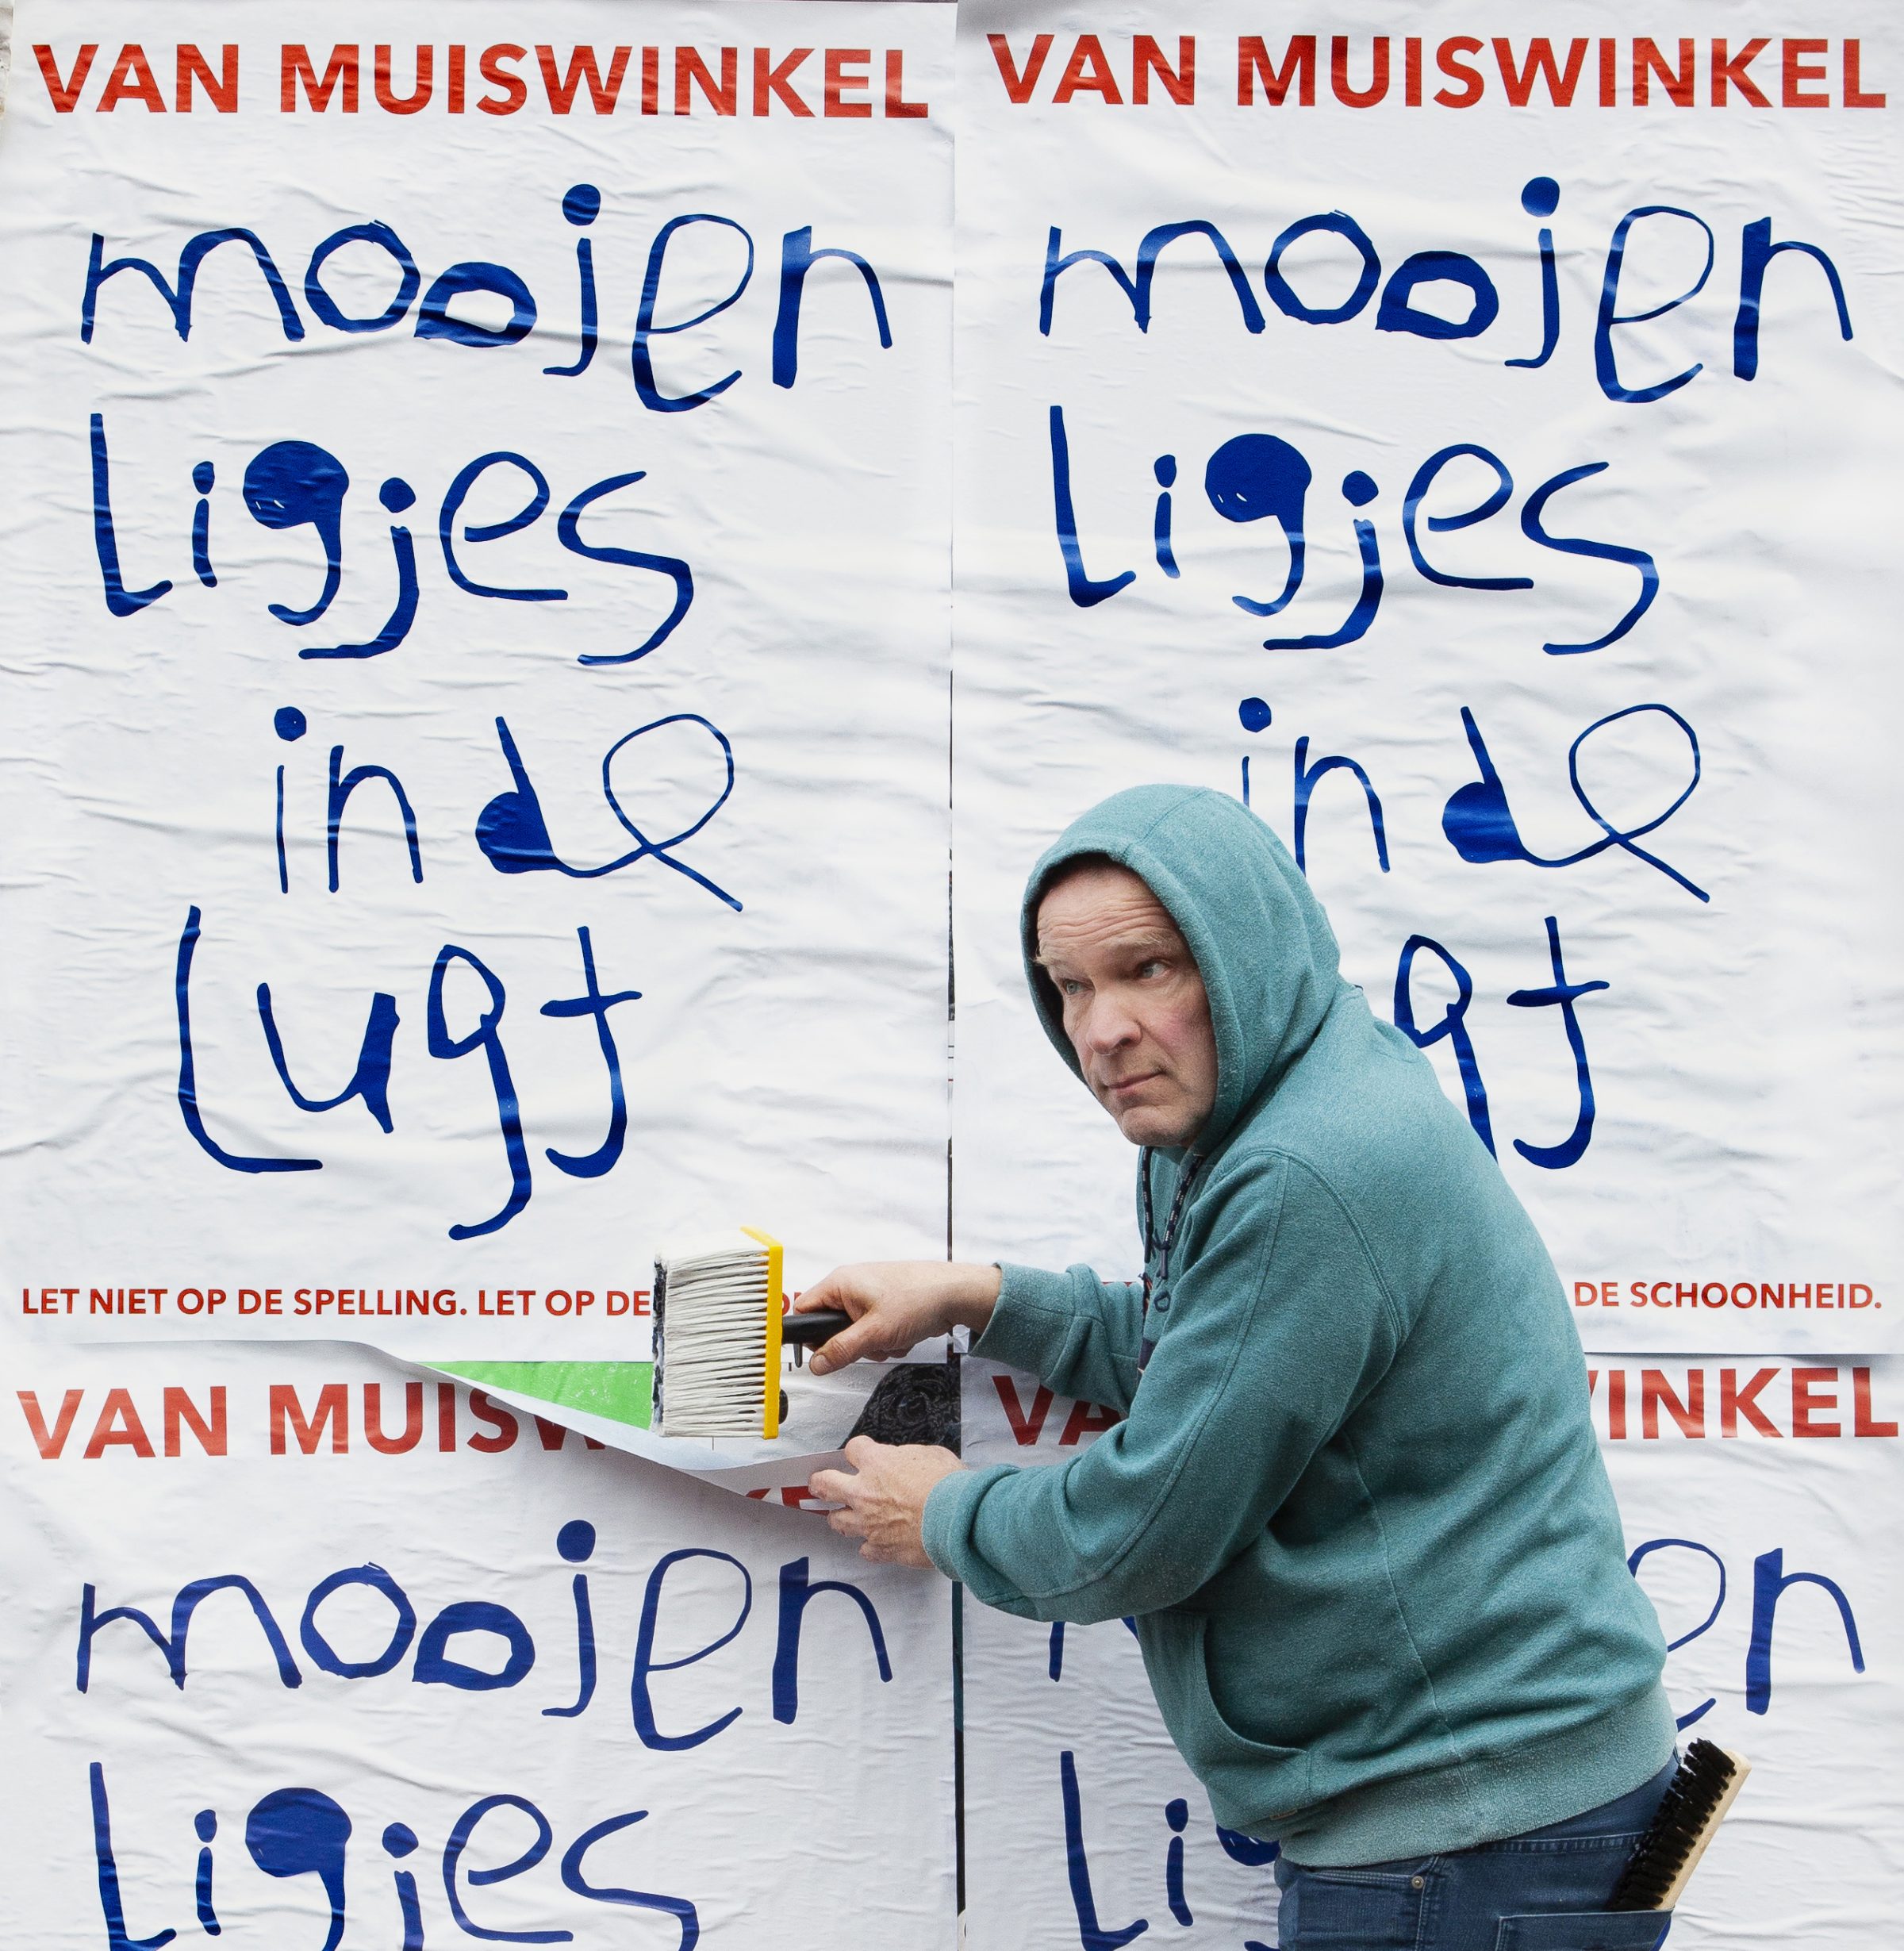 VAN MUISWINKEL
moojen
Ligjes
in de
Lugt
LET NIET OP DE SPELLING. LET OP DE
VAN MUISWINKEL
moojen
Ligjes
in de
gt
DE SCHOONHEID.
VAN MUISW
KE
moojen
Ligjes
VA
INKEL
en
Lig